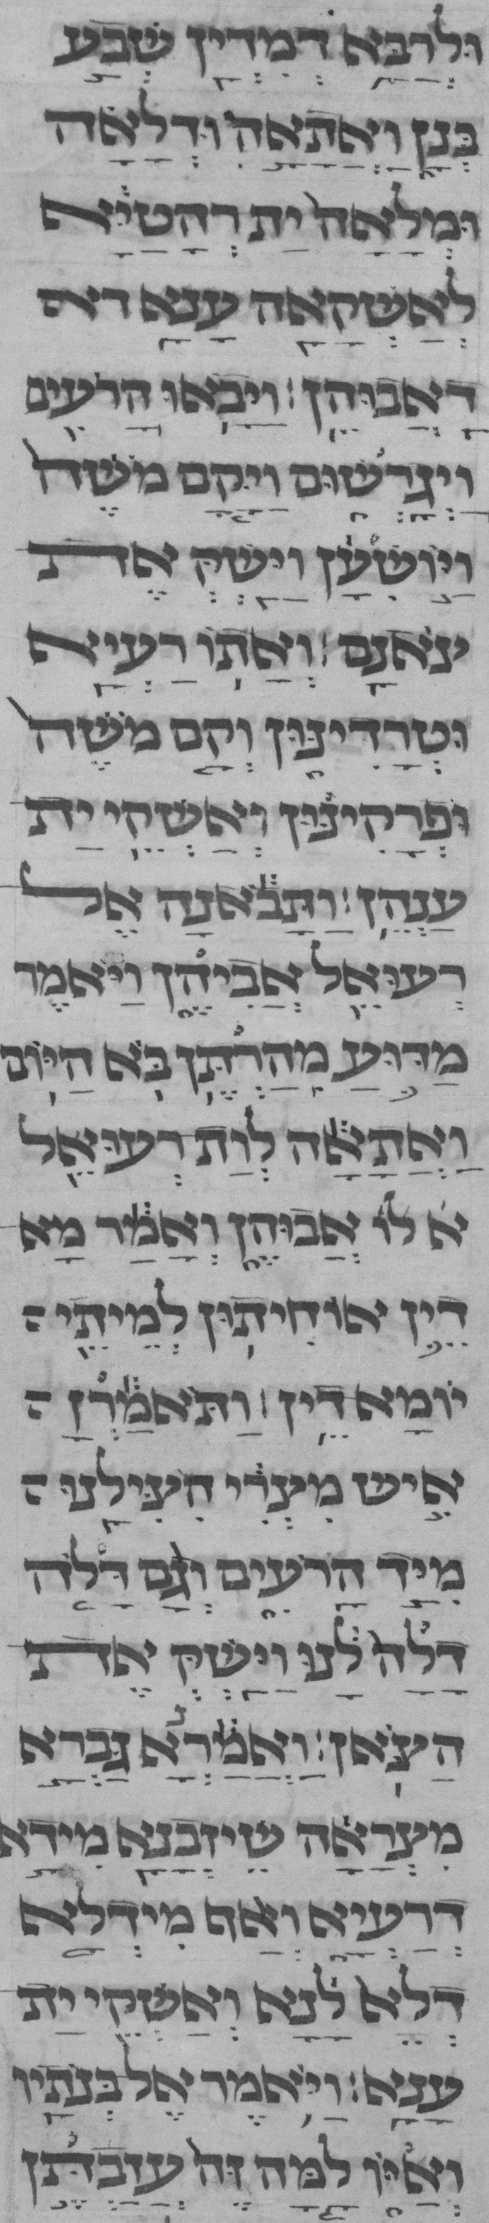 וּלְרַבָּא דְמִדְיָן שְׁבַע
בְּנָן וַאֲתָאָה וּדְלָאָה
וּמְלָאָה יָת רְהָטַיָּא
לְאַשְׁקָאָה עָנָא דא
דַאֲבוּהֶן׃ וַיָּבֹאוּ הָרֹעִים
וַיְגָרְשׁוּם וַיָּקָם מֹשֶׁה
וַיּוֹשִׁעָן וַיַּשְׁקְ אֶת
צֹאנָם׃ וַאֲתוֹ רָעַיָא
וּטְרָדִינּוּן וְקָם מֹשֶׁה
וּפְרָקִינּוּן וְאַשְׁקִי יָת
עָנְהֵן׃ וַתָּבֹאנָה אֶל
רְעוּאֵל אֲבִיהֶן וַיֹּאמֶר
מַדּוּעַ מִהַרְתֶּן בֹּא הַיּוֹם
וַאֲתָאָה לְוָת רְעוּאֵל
אֲבוּהֶן וַאֲמַר מָא
דֵין אוֹחִיתוּן לְמֵיתֵי
יוֹמָא דֵין׃ וַתֹּאמַרְןָ
אִישׁ מִצְרִי הִצִּילָנוּ
מִיַּד הָרֹעִים וְגַם דָּלֹה
דָלָה לָנוּ וַיַּשְׁקְ אֶת
הַצֹּאן׃ וַאֲמַרָא גֻּבְרָא
מִצְרָאָה שֵׁיזְבַנָא מִידָא
דְרָעַיָא וְאַף מִידְלָא
דְלָא לַנָא וְאַשְׁקִי יָת
עָנָא׃ וַיֹּאמֶר אֶל בְּנֹתָיו
וְאַיּוֹ לָמָּה זֶּה עֲזַבְתֶּן